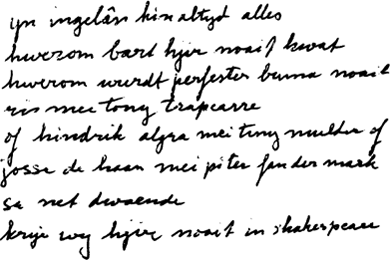 yn ingelân kin altyd alles
hwerom bart hjir noait hwat
hwerom wurdt perfester buma noait
ris mei tony trapearre
of hindrik algra mei teny mulder of
josse de haan mei piter fan der mark
sa net dwaende
krije wy hjir noait in shakespeare